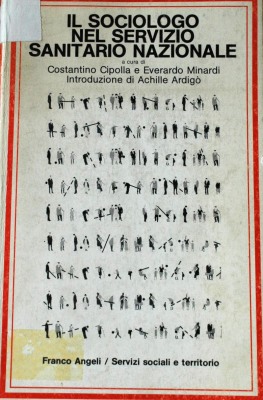 IL SOCIOLOGO
NEL SERVIZIO
SANITARIO NAZIONALE
a cura di
Costantino Cipolla e Everardo Minardi
Introduzione di Achille Ardigò
Franco Angeli / Servizi sociali e territorio